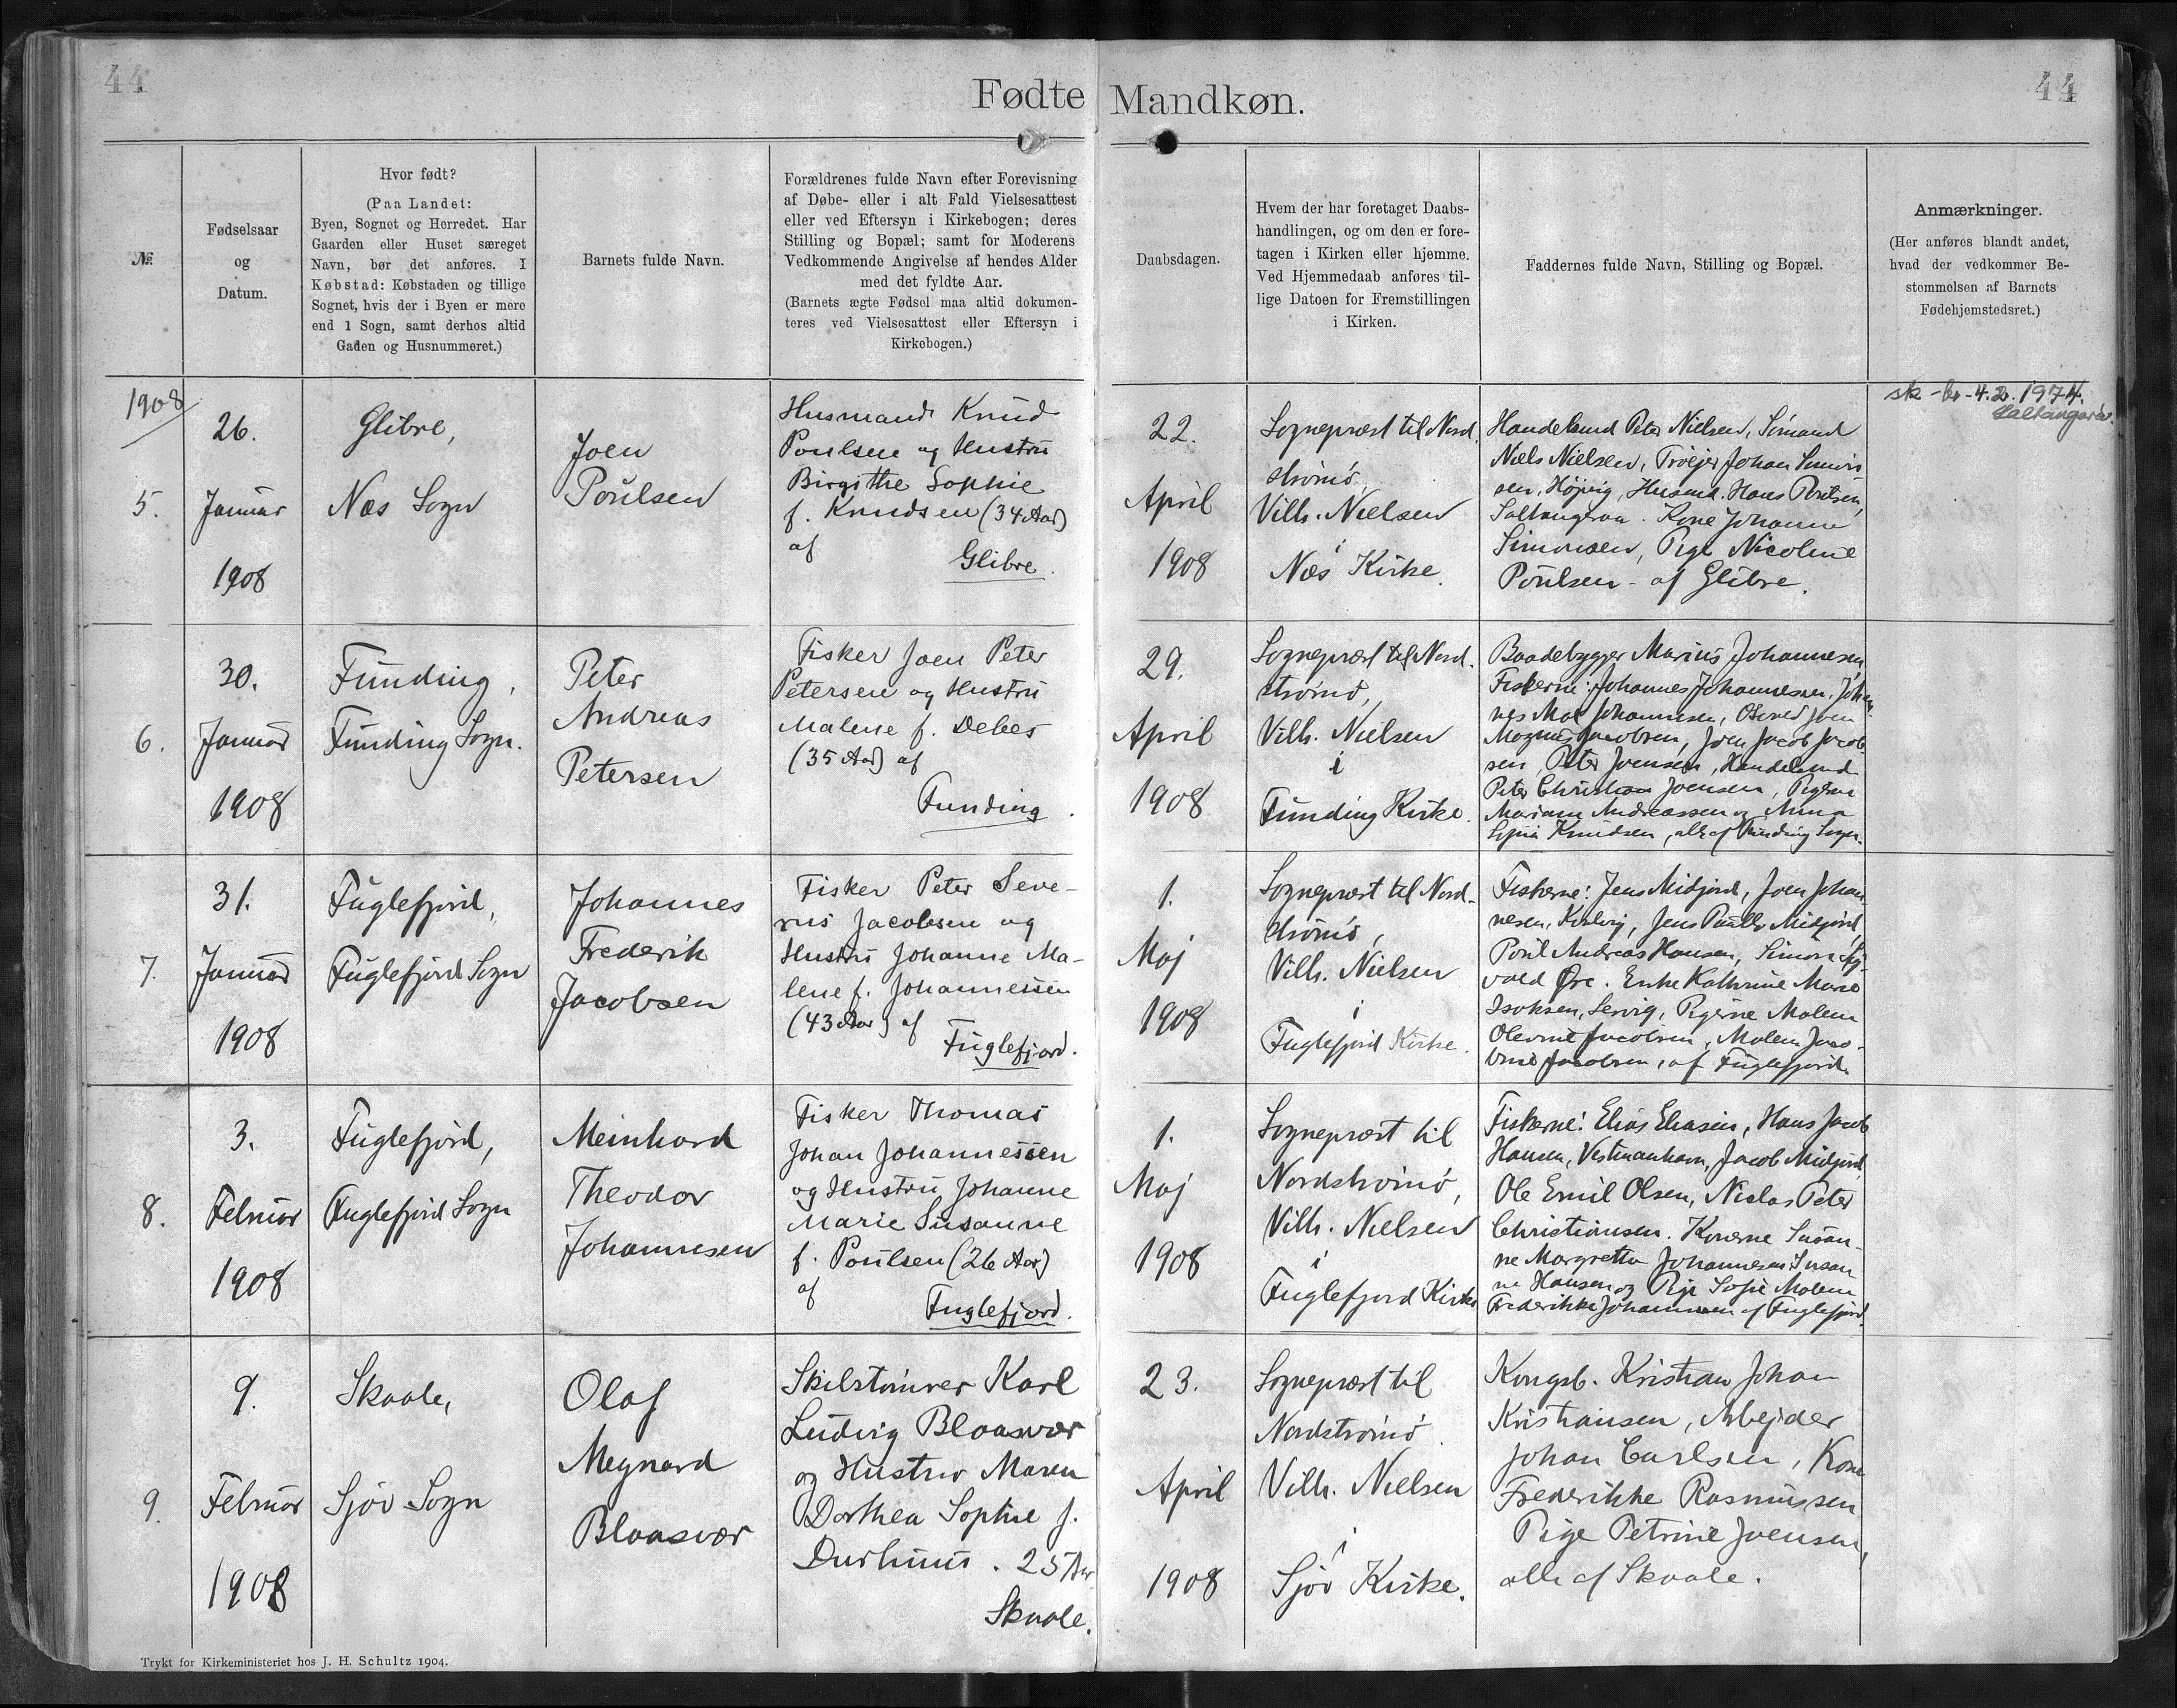 44
Fødte Mandkøn.
44
№
Fødselsaar
og
Datum.
Hvor født?
(Paa Landet:
Byen, Sognet og Herredet. Har
Gaarden eller Huset særeget
Navn, bør det anføres. I
Købstad: Købstaden og tillige
Sognet, hvis der i Byen er mere
end 1 Sogn, samt derhos altid
Gaden og Husnummeret.)
Barnets fulde Navn.
Forældrenes fulde Navn efter Forevisning
af Døbe- eller i alt Fald Vielsesattest
eller ved Eftersyn i Kirkebogen; deres
Stilling og Bopæl; samt for Moderens
Vedkommende Angivelse af hendes Alder
med det fyldte Aar.
(Barnets ægte Fødsel maa altid dokumen-
teres ved Vielsesattest eller Eftersyn i
Kirkebogen.)
Daabsdagen.
Hvem der har foretaget Daabs-
handlingen, og om den er fore-
tagen i Kirken eller hjemme.
Ved Hjemmedaab anføres til-
lige Datoen for Fremstillingen
i Kirken.
Faddernes fulde Navn, Stilling og Bopæl.
Anmærkninger.
(Her anføres blandt andet,
hvad der vedkommer Be-
stemmelsen af Barnets
Fødehjemstedsret.)
1908
5.
26.
Januar
1908
Glibre,
Næs Sogn
Joen
Poulsen
Husmand Knud
Poulsen og Hustru
Birgithe Sophie
f. Knudsen (34 Aar)
af
Glibre.
22.
April
1908
Sognepræst til Nord.
strømø,
Vilh. Nielsen
i
Næs Kirke.
Handelsmd Peter Nielsen, Sømand
Niels Nielsen, Johan Simon
sen, Højvig, Husmd. Hans Poulsen,
Saltangraa. Kone Johanne
Simonsen, Pige Nicoline
Poulsen - af Glibre.
sk -br - 4.2.1974.
6.
30.
Januar
1908
Funding,
Funding Sogn.
Peter
Andreas
Petersen
Fisker Joen Peter
Petersen og Hustru
Malene f. Debes
(35 Aar) af
Funding.
29.
April
1908
Sognepræst til Nord.
strømø,
Vilh. Nielsen
i
Funding Kirke.
Baadebygger Marius Johannesen
Fiskerne: Johannes Johannesen, Johan
nes Johannesen, Joen
Magnus Jacobsen, Joen Jacob Jacob
sen, Peter Joensen, Handelsmd
Peter Christian Joensen, Pigerne
Mariane Andreassen og Anna
Knudsen, alle af Funding Sogn.
7.
31.
Januar
1908
Fuglefjord,
Fuglefjord Sogn
Johannes
Frederik
Jacobsen
Fisker Peter Seve-
rus Jacobsen og
Hustru Johanne Ma-
lene f. Johannessen
(43 Aar) af
Fuglefjord.
1.
Maj
1908
Sognepræst til Nord-
strømø,
Vilh. Nielsen
i
Fuglefjord Kirke.
Fiskerne: Jens Midjord, Joen Johan
nesen, Jens Midjord,
Poul Andreas Hansen, Simon Sig-
vald Øre. Enke Kathrine Marie
Isaksen, Pigerne Malene
Jacobsen, Malene Jaco-
bine Jacobsen, af Fuglefjord.
8.
3.
Februar
1908
Fuglefjord,
Fuglefjord Sogn
Meinhard
Theodor
Johannesen
Fisker Thomas
Johan Johannessen
og Hustru Johanne
Marie Susanne
f. Poulsen (26 Aar)
af
Fuglefjord.
1.
Maj
1908
Sognepræst til
Nordstrømø,
Vilh. Nielsen
i
Fuglefjord Kirke
Fiskerne: Elias Eliasen, Hans Jacob
Hansen, Vestmanhavn, Jacob Midjord,
Ole Emil Olsen, Niclas Peter
Christiansen. Konerne Susan-
ne Margretha Johannesen, Susan
ne Hansen og Pige Sofie Malene
Frederikke Johannesen af Fuglefjord.
9.
9.
Februar
1908
Skaale,
Sjøv Sogn
Olaf
Meynard
Blaasvær
Skilstømrer Karl
Ludvig Blaasvær
og Hustru Maren
Dorthea Sophie f.
Durhuus. 25 Aar.
Skaale.
23.
April
1908
Sognepræst til
Nordstrømø.
Vilh. Nielsen
i
Sjøv Kirke.
Kongsb. Kristian Johan
Kristiansen, Arbejder
Johan Carlsen, Kone
Frederikke Rasmussen
Pige Petrine Joensen,
alle af Skaale.
Trykt for Kirkeministeriet hos J. H. Schultz 1904.